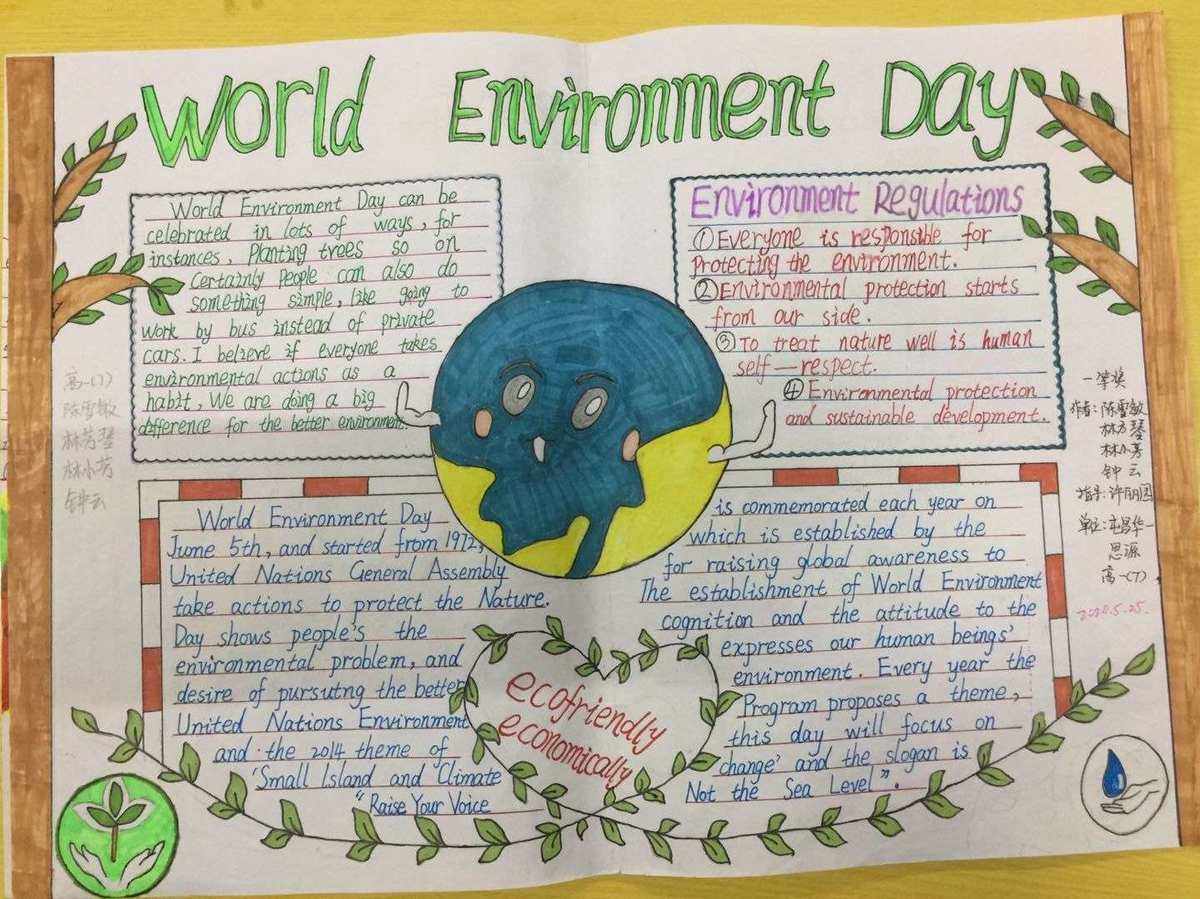 World Environment Day
World Environment Day can be
celebrated in lots of ways, for
instances, Planting trees so on
Certainly people can also do
something simple, like going to
work by bus instead of private
cars. I believe if everyone takes
environmental actions as a
habit, We are doing a big
difference for the better environment.
Environment Regulations
①Everyone is responsible for
Protecting the environment.
②Environmental protection starts
from our side.
③To treat nature well is human
self—respect.
④Environmental protection
and sustainable development.
高一(7)
陈雪敏
林芳琴
林小芳
钟云
一等奖
作者:陈雪敏
林方琴
林小芳
钟云
指导:许丽园
单位:屯昌华一
思源
高一(7)
2020.5.25.
World Environment Day is commemorated each year on
June 5th, and started from 1972, which is established by the
United Nations General Assembly for raising global awareness to
take actions to protect the Nature. The establishment of World Environment
Day shows people's the cognition and the attitude to the
environmental problem, and expresses our human beings'
desire of pursutng the better environment. Every year the
United Nations Environment Program proposes a theme,
and the 2014 theme of this day will focus on
'Small Island and Climate change' and the slogan is
"Raise Your Voice Not the Sea Level".
ecofriendly
economically